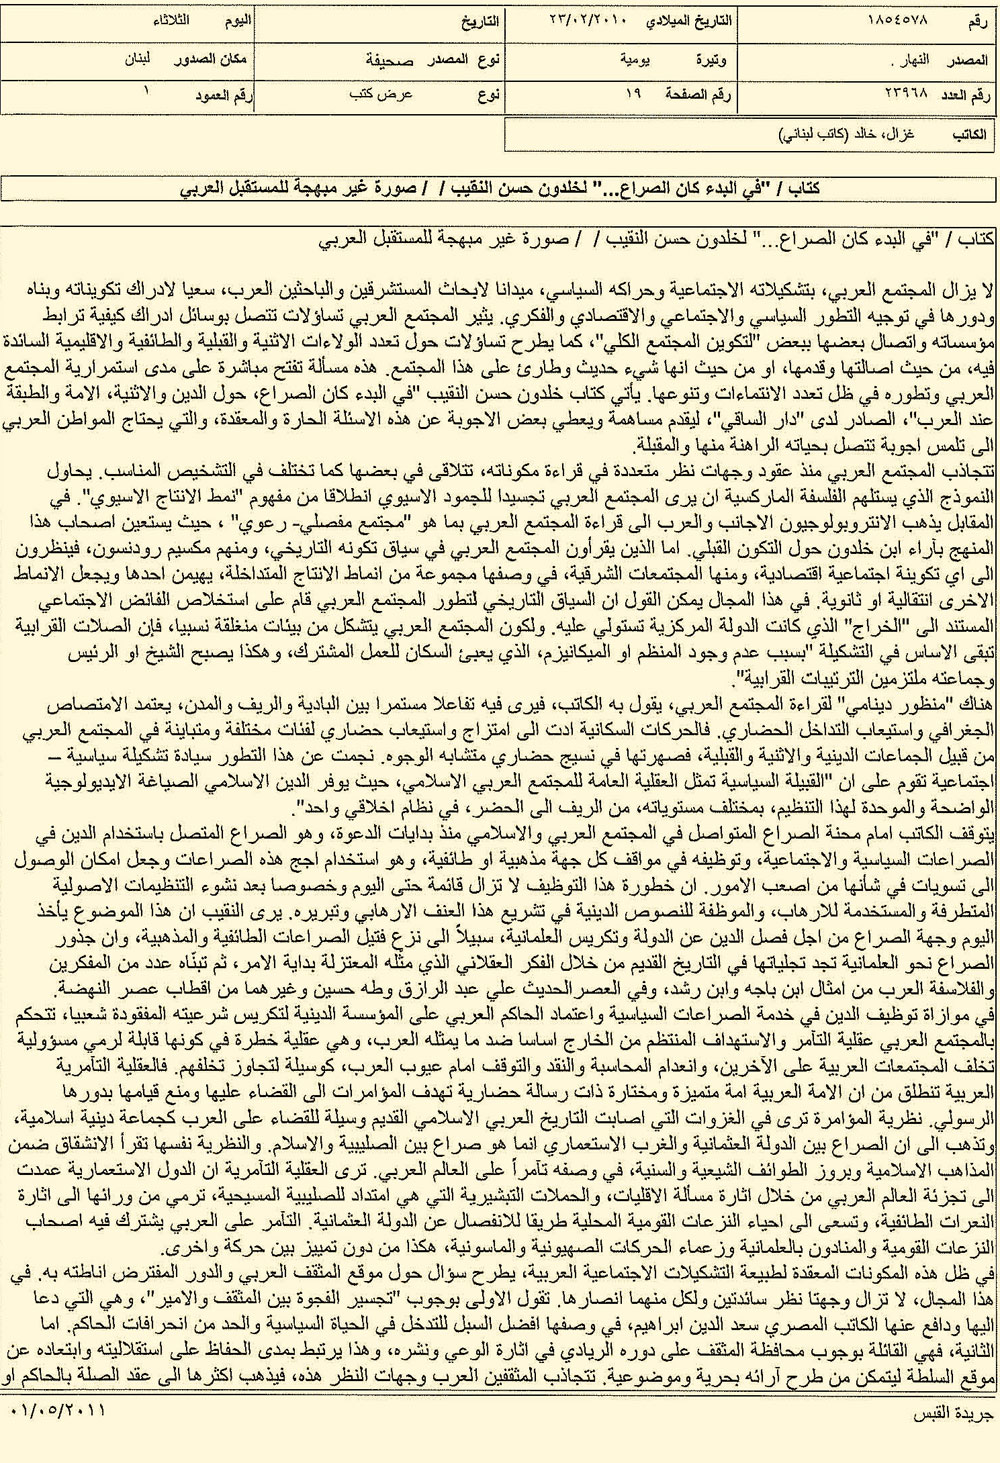 رقم ١٨٥٤٥٧٨ التاريخ الميلادي ٢٣/٠٢/٢٠١٠ التاريخ اليوم الثلاثاء
المصدر النهار . وتيرة يومية نوع المصدر صحيفة مكان الصدور لبنان
رقم العدد ٢٣٩٦٨ رقم الصفحة ١٩ نوع عرض كتب رقم العمود ١
الكاتب غزال، خالد (كاتب لبناني)
كتاب / "في البدء كان الصراع..." لخلدون حسن النقيب / / صورة غير مبهجة للمستقبل العربي
كتاب / "في البدء كان الصراع..." لخلدون حسن النقيب / / صورة غير مبهجة للمستقبل العربي
لا يزال المجتمع العربي، بتشكيلاته الاجتماعية وحراكه السياسي، ميدانا لابحاث المستشرقين والباحثين العرب، سعيا لادراك تكويناته وبناه
ودورها في توجيه التطور السياسي والاجتماعي والاقتصادي والفكري. يثير المجتمع العربي تساؤلات تتصل بوسائل ادراك كيفية ترابط
مؤسساته واتصال بعضها ببعض "لتكوين المجتمع الكلي"، كما يطرح تساؤلات حول تعدد الولاءات الاثنية والقبلية والطائفية والاقليمية السائدة
فيه، من حيث اصالتها وقدمها، او من حيث انها شيء حديث وطارئ على هذا المجتمع. هذه مسألة تفتح مباشرة على مدى استمرارية المجتمع
العربي وتطوره في ظل تعدد الانتماءات وتنوعها. يأتي كتاب خلدون حسن النقيب "في البدء كان الصراع، حول الدين والاثنية، الامة والطبقة
عند العرب"، الصادر لدى "دار الساقي"، ليقدم مساهمة ويعطي بعض الاجوبة عن هذه الاسئلة الحارة والمعقدة، والتي يحتاج المواطن العربي
الى تلمس اجوبة تتصل بحياته الراهنة منها والمقبلة.
تتجاذب المجتمع العربي منذ عقود وجهات نظر متعددة في قراءة مكوناته، تتلاقى في بعضها كما تختلف في التشخيص المناسب. يحاول
النموذج الذي يستلهم الفلسفة الماركسية ان يرى المجتمع العربي تجسيدا للجمود الاسيوي انطلاقا من مفهوم "نمط الانتاج الاسيوي". في
المقابل يذهب الانتروبولوجيون الاجانب والعرب الى قراءة المجتمع العربي بما هو "مجتمع مفصلي- رعوي" ، حيث يستعين اصحاب هذا
المنهج بآراء ابن خلدون حول التكون القبلي. اما الذين يقرأون المجتمع العربي في سياق تكونه التاريخي، ومنهم مكسيم رودنسون، فينظرون
الى اي تكوينة اجتماعية اقتصادية، ومنها المجتمعات الشرقية، في وصفها مجموعة من انماط الانتاج المتداخلة، يهيمن احدها ويجعل الانماط
الاخرى انتقالية او ثانوية. في هذا المجال يمكن القول ان السياق التاريخي لتطور المجتمع العربي قام على استخلاص الفائض الاجتماعي
المستند الى "الخراج" الذي كانت الدولة المركزية تستولي عليه. ولكون المجتمع العربي يتشكل من بيئات منغلقة نسبيا، فإن الصلات القرابية
تبقى الاساس في التشكيلة "بسبب عدم وجود المنظم او الميكانيزم، الذي يعبئ السكان للعمل المشترك، وهكذا يصبح الشيخ او الرئيس
وجماعته ملتزمين الترتيبات القرابية".
هناك "منظور دينامي" لقراءة المجتمع العربي، يقول به الكاتب، فيرى فيه تفاعلا مستمرا بين البادية والريف والمدن، يعتمد الامتصاص
الجغرافي واستيعاب التداخل الحضاري. فالحركات السكانية ادت الى امتزاج واستيعاب حضاري لفئات مختلفة ومتباينة في المجتمع العربي
من قبيل الجماعات الدينية والاثنية والقبلية، فصهرتها في نسيج حضاري متشابه الوجوه. نجمت عن هذا التطور سيادة تشكيلة سياسية –
اجتماعية تقوم على ان "القبيلة السياسية تمثل العقلية العامة للمجتمع العربي الاسلامي، حيث يوفر الدين الاسلامي الصياغة الايديولوجية
الواضحة والموحدة لهذا التنظيم، بمختلف مستوياته، من الريف الى الحضر، في نظام اخلاقي واحد".
يتوقف الكاتب امام محنة الصراع المتواصل في المجتمع العربي والاسلامي منذ بدايات الدعوة، وهو الصراع المتصل باستخدام الدين في
الصراعات السياسية والاجتماعية، وتوظيفه في مواقف كل جهة مذهبية او طائفية، وهو استخدام اجج هذه الصراعات وجعل امكان الوصول
الى تسويات في شأنها من اصعب الامور. ان خطورة هذا التوظيف لا تزال قائمة حتى اليوم وخصوصا بعد نشوء التنظيمات الاصولية
المتطرفة والمستخدمة للارهاب، والموظفة للنصوص الدينية في تشريع هذا العنف الارهابي وتبريره. يرى النقيب ان هذا الموضوع يأخذ
اليوم وجهة الصراع من اجل فصل الدين عن الدولة وتكريس العلمانية، سبيلاً الى نزع فتيل الصراعات الطائفية والمذهبية، وان جذور
الصراع نحو العلمانية تجد تجلياتها في التاريخ القديم من خلال الفكر العقلاني الذي مثّله المعتزلة بداية الامر، ثم تبنّاه عدد من المفكرين
والفلاسفة العرب من امثال ابن باجه وابن رشد، وفي العصرالحديث علي عبد الرازق وطه حسين وغيرهما من اقطاب عصر النهضة.
في موازاة توظيف الدين في خدمة الصراعات السياسية واعتماد الحاكم العربي على المؤسسة الدينية لتكريس شرعيته المفقودة شعبيا، تتحكم
بالمجتمع العربي عقلية التآمر والاستهداف المنتظم من الخارج اساسا ضد ما يمثله العرب، وهي عقلية خطرة في كونها قابلة لرمي مسؤولية
تخلف المجتمعات العربية على الآخرين، وانعدام المحاسبة والنقد والتوقف امام عيوب العرب، كوسيلة لتجاوز تخلفهم. فالعقلية التآمرية
العربية تنطلق من ان الامة العربية امة متميزة ومختارة ذات رسالة حضارية تهدف المؤامرات الى القضاء عليها ومنع قيامها بدورها
الرسولي. نظرية المؤامرة ترى في الغزوات التي اصابت التاريخ العربي الاسلامي القديم وسيلة للقضاء على العرب كجماعة دينية اسلامية،
وتذهب الى ان الصراع بين الدولة العثمانية والغرب الاستعماري انما هو صراع بين الصليبية والاسلام. والنظرية نفسها تقرأ الانشقاق ضمن
المذاهب الاسلامية وبروز الطوائف الشيعية والسنية، في وصفه تآمراً على العالم العربي. ترى العقلية التآمرية ان الدول الاستعمارية عمدت
الى تجزئة العالم العربي من خلال اثارة مسألة الاقليات، والحملات التبشيرية التي هي امتداد للصليبية المسيحية، ترمي من ورائها الى اثارة
النعرات الطائفية، وتسعى الى احياء النزعات القومية المحلية طريقا للانفصال عن الدولة العثمانية. التآمر على العربي يشترك فيه اصحاب
النزعات القومية والمنادون بالعلمانية وزعماء الحركات الصهيونية والماسونية، هكذا من دون تمييز بين حركة واخرى.
في ظل هذه المكونات المعقدة لطبيعة التشكيلات الاجتماعية العربية، يطرح سؤال حول موقع المثقف العربي والدور المفترض اناطته به. في
هذا المجال، لا تزال وجهتا نظر سائدتين ولكل منهما انصارها. تقول الاولى بوجوب "تجسير الفجوة بين المثقف والامير"، وهي التي دعا
اليها ودافع عنها الكاتب المصري سعد الدين ابراهيم، في وصفها افضل السبل للتدخل في الحياة السياسية والحد من انحرافات الحاكم. اما
الثانية، فهي القائلة بوجوب محافظة المثقف على دوره الريادي في اثارة الوعي ونشره، وهذا يرتبط بمدى الحفاظ على استقلاليته وابتعاده عن
موقع السلطة ليتمكن من طرح آرائه بحرية وموضوعية. تتجاذب المثقفين العرب وجهات النظر هذه، فيذهب اكثرها الى عقد الصلة بالحاكم او
جريدة القبس ٠١/٠٥/٢٠١١